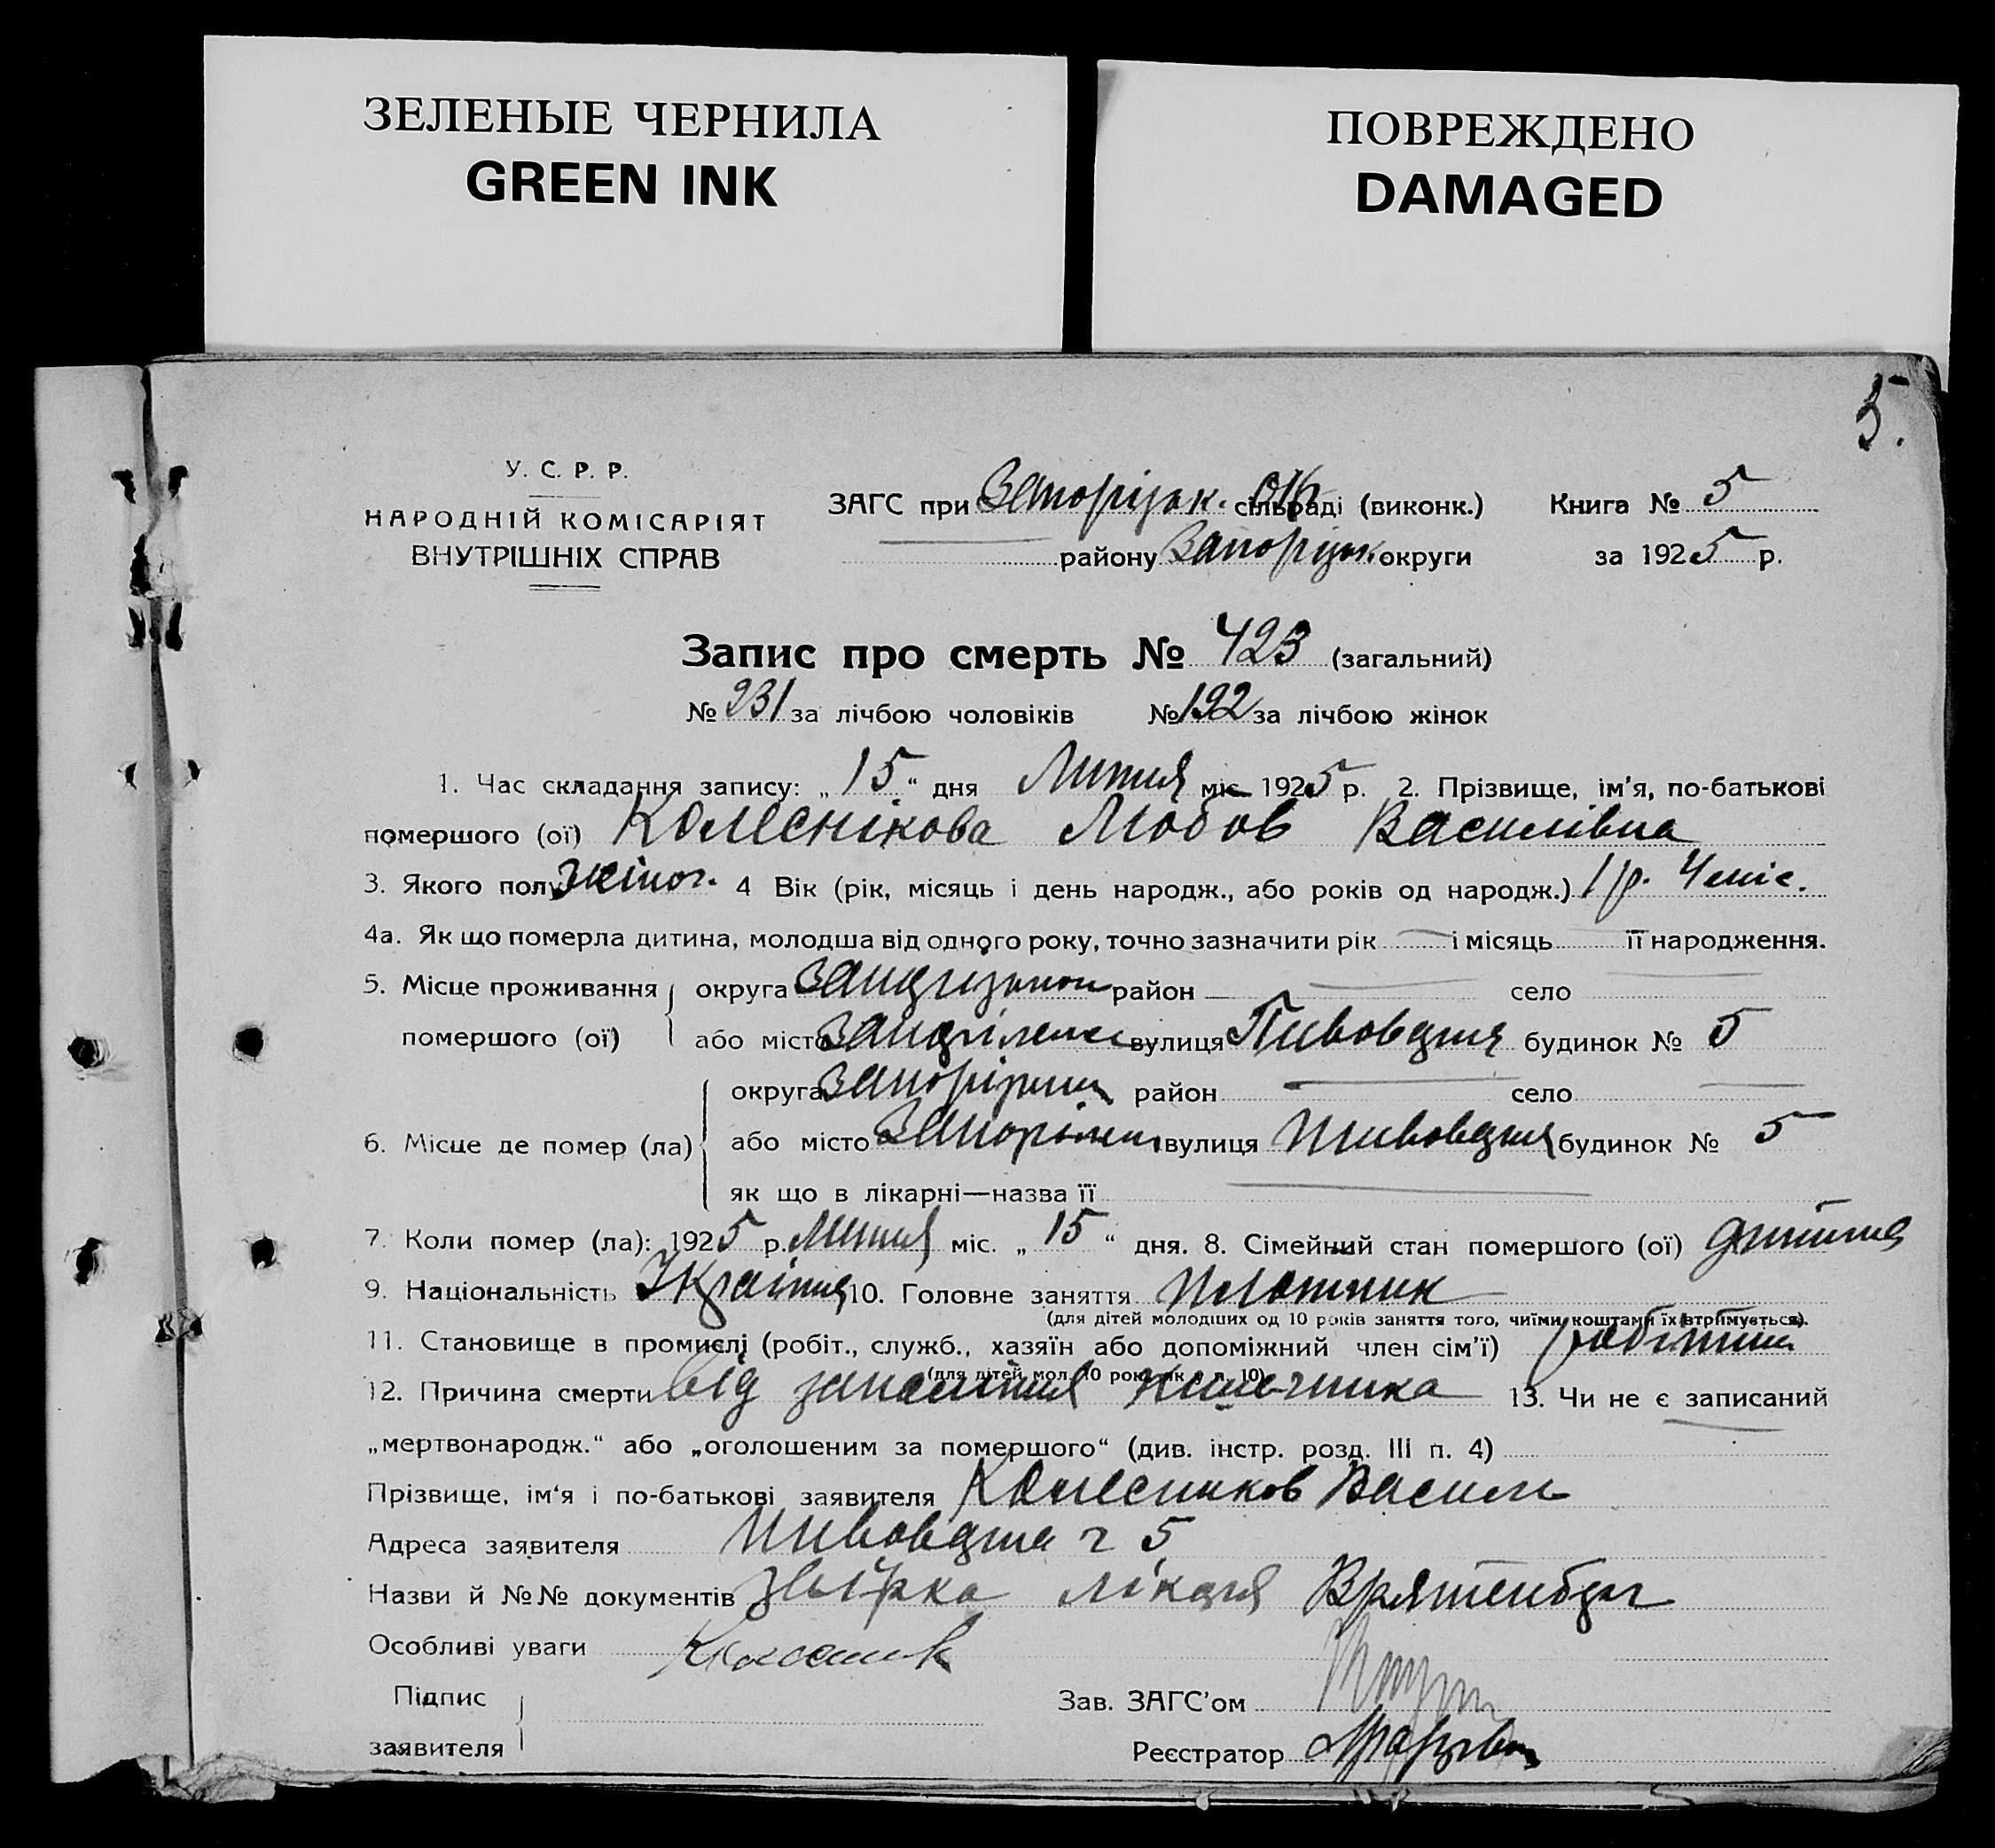 ЗЕЛЕНЫЕ ЧЕРНИЛА
GREEN INK
ПОВРЕЖДЕНО
DAMAGED
5.
У. С. Р. Р.
НАРОДНІЙ КОМІСАРІЯТ
ВНУТРІШНІХ СПРАВ
ЗАГС при Запорізьк. сільраді (виконк.) Книга № 5
району Запорізьк. округи за 1925 р.
Запис про смерть № 423 (загальний)
№ 231 за лічбою чоловіків № 192 за лічбою жінок
1. Час складання запису: „15“ дня Липня міс. 1925 р. 2. Прізвище, ім'я, по-батькові
помершого (ої) Колеснікова Любов Василівна
3. Якого полу жіноч. 4 Вік (рік, місяць і день народж., або років од народж.) 1 р. 4 міс.
4а. Як що померла дитина, молодша від одного року, точно зазначити рік і місяць її народження.
5. Місце проживання округа район село
помершого (ої) або місто вулиця будинок № 5
округа район село
6. Місце де помер (ла) або місто вулиця будинок № 5
як що в лікарні—назва її
7. Коли помер (ла): 1925 р. Липня міс. „15“ дня. 8. Сімейний стан помершого (ої) дитина
9. Національність 10. Головне заняття плотник
(для дітей молодших од 10 років заняття того, чиїми коштами їх втримується).
11. Становище в промислі (робіт., служб., хазяїн або допоміжний член сім'ї)
(для дітей мол. 10 рок. як в п. 10)
12. Причина смерти від запалення кишечника 13. Чи не є записаний
„мертвонародж.“ або „оголошеним за помершого“ (див. інстр. розд. III п. 4)
Прізвище, ім'я і по-батькові заявителя Колесников Василь
Адреса заявителя 5
Назви й №№ документів лікаря
Особливі уваги
Підпис
заявителя
Зав. ЗАГС'ом
Реєстратор